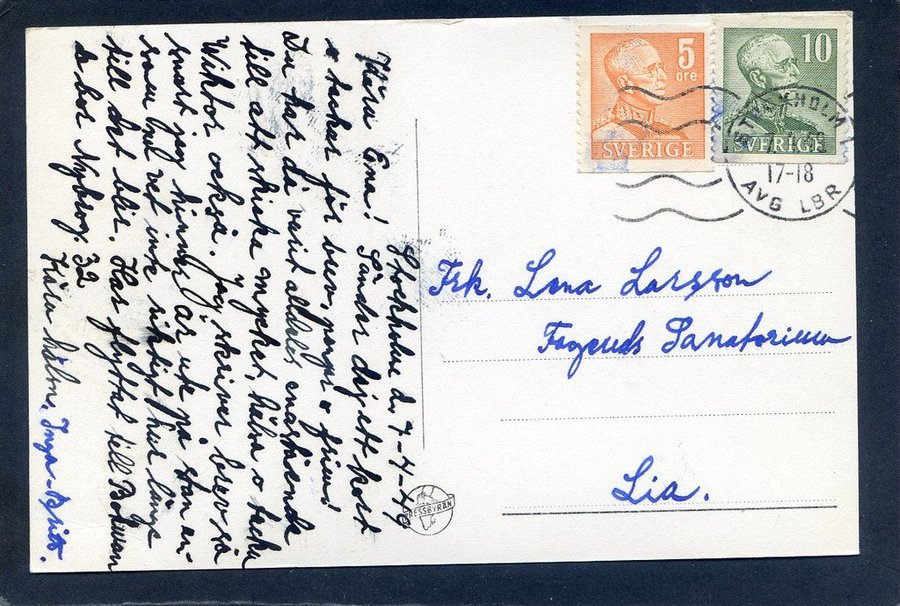 Stockholm d. 7-4-
Kära Ena! Sänder dej ett kort
o tackar för brev, pengar o frim!
Du har då varit alldeles enastående
till att skicka mycket, hälsa o tacka
Wiktor också. Jag skriver brev så
snart jag hinner, är ute på stan
nu vet inte riktigt hur länge
till det blir. Har flyttat till
de bor Nybrog. 32
Kära hälsn. Inga-Britt.
PRESSBYRÅN
5
öre
SVERIGE
10
SVERIGE
STOCKHOLM
17-18
AVG LBR
Frk. Lena Larsson
Sanatorium
Lia.